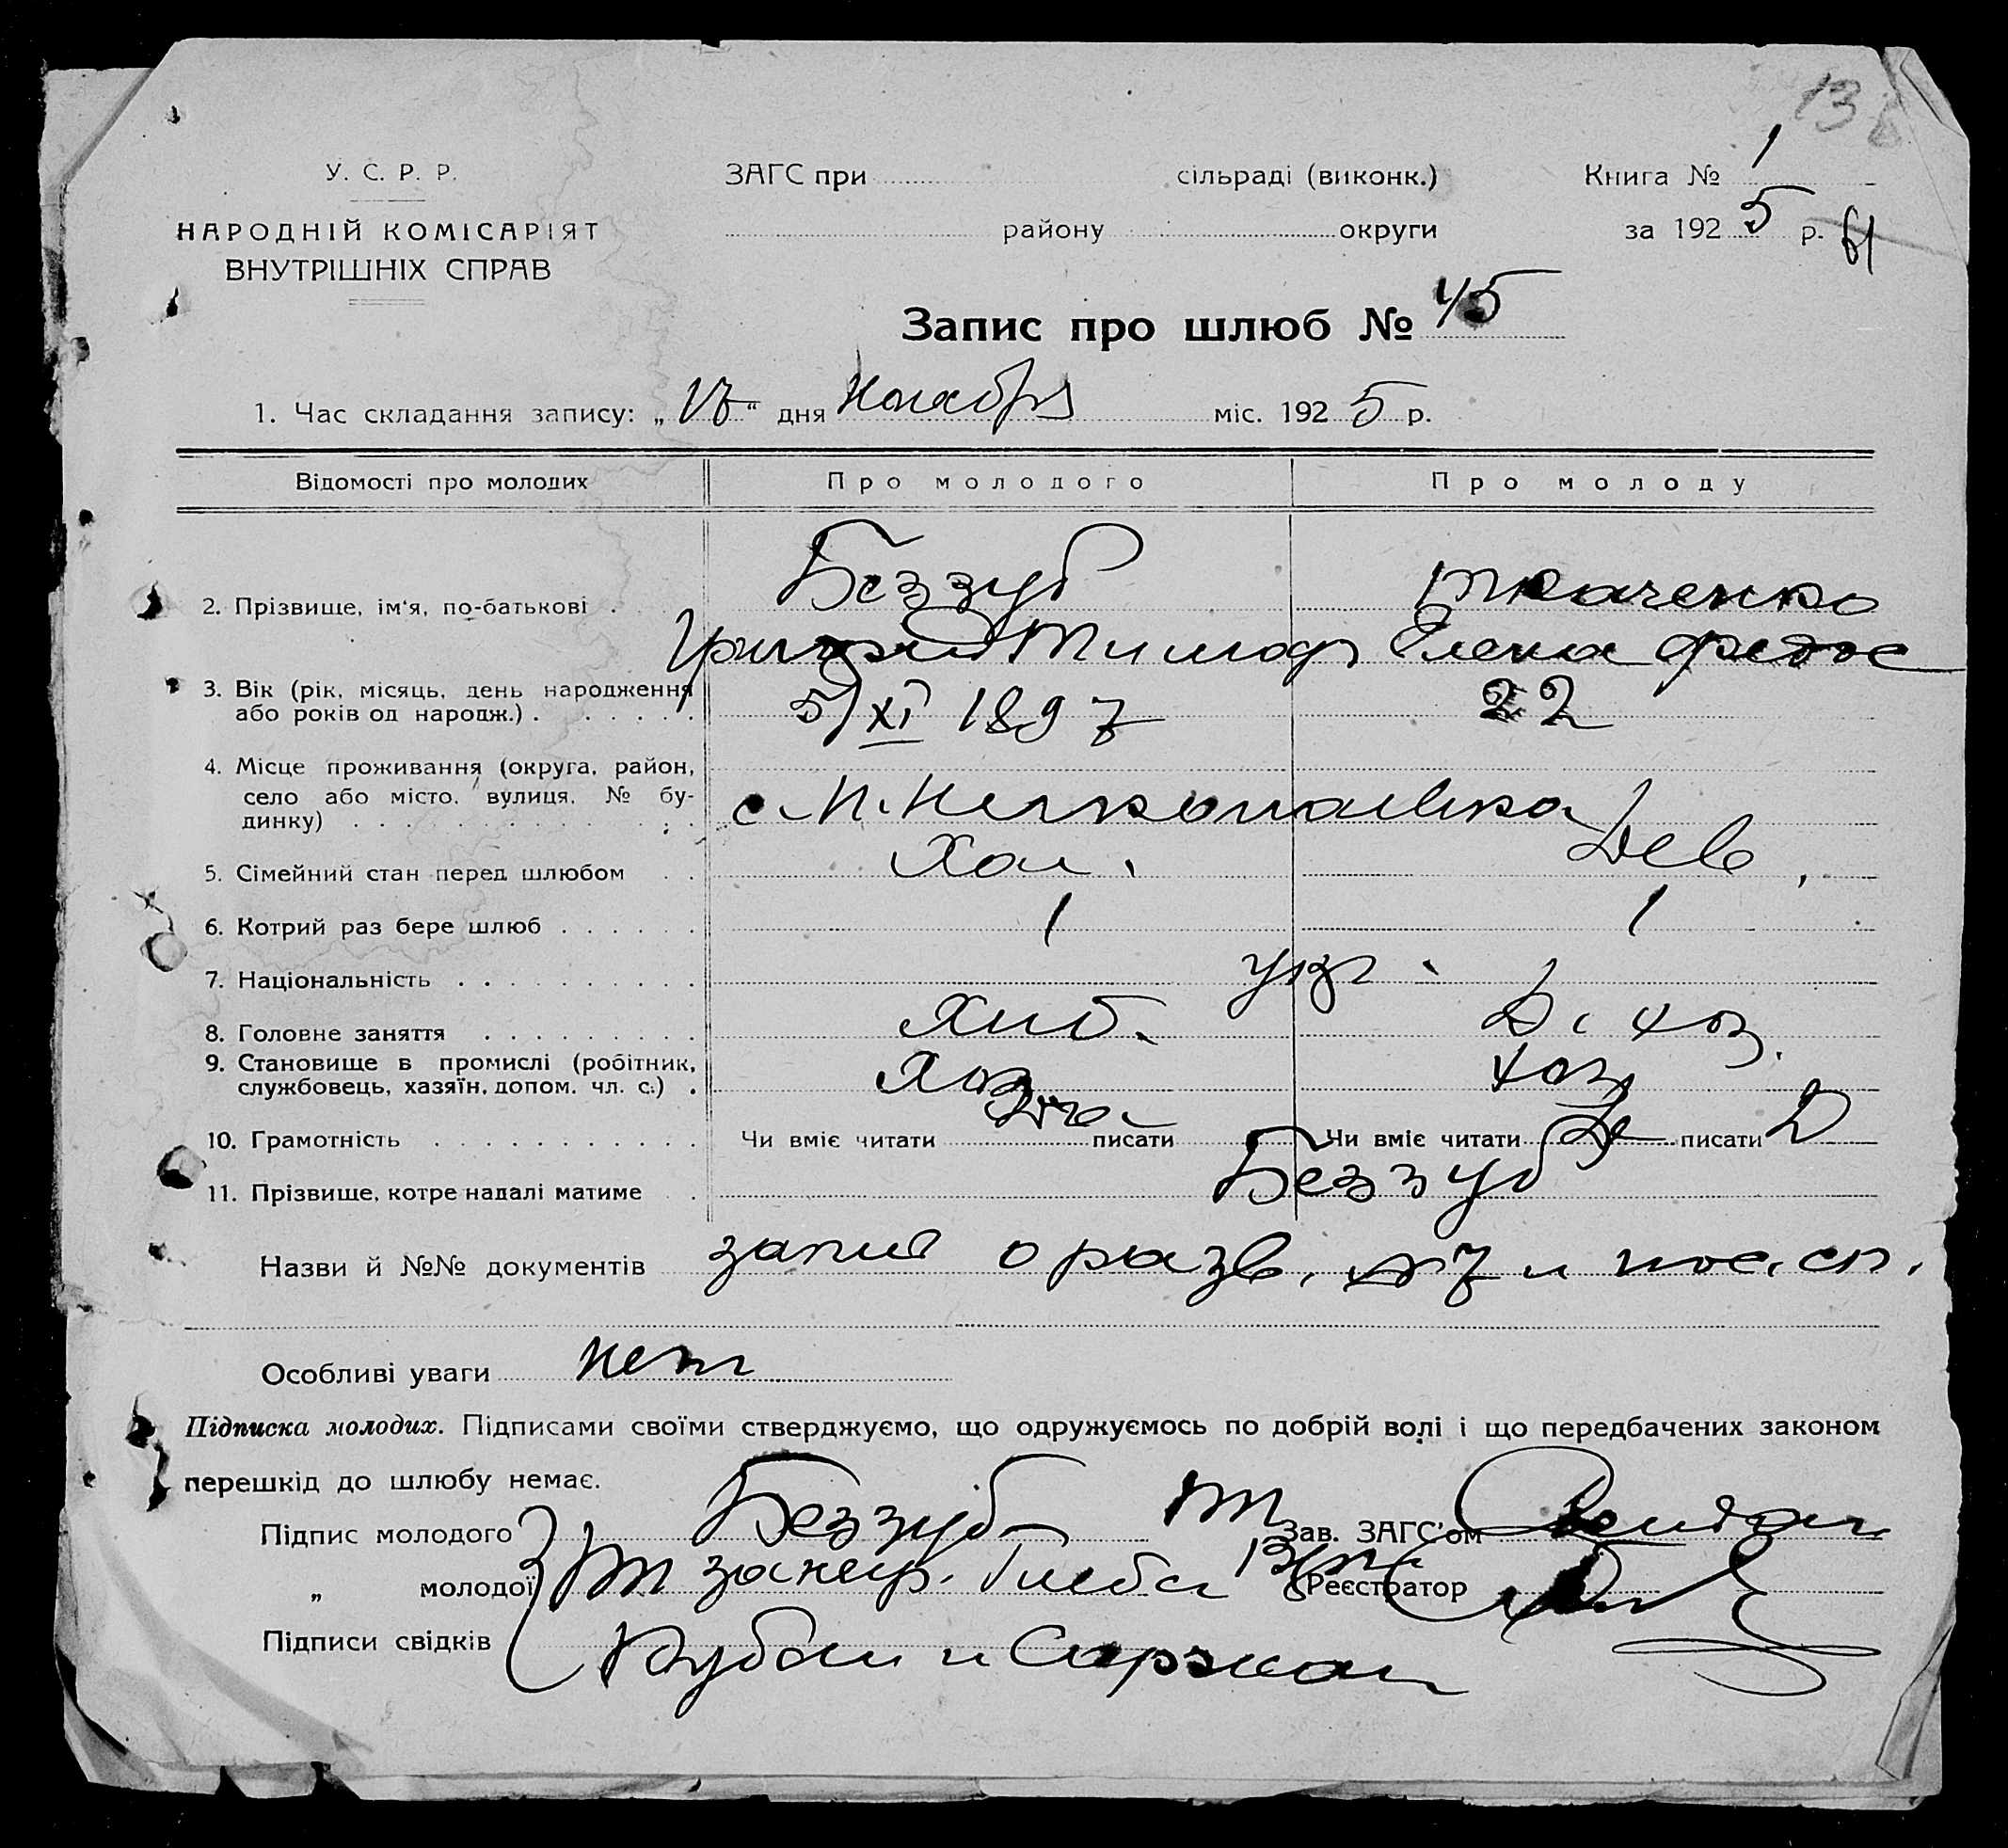 13
У. С. Р. Р.
НАРОДНІЙ КОМІСАРІЯТ
ВНУТРІШНІХ СПРАВ
ЗАГС при сільраді (виконк.)
району округи
Книга № 1
за 1925 р.
Запис про шлюб № 45
1. Час складання запису: „17“ дня Ноября міс. 1925 р.
Відомості про молодих Про молодого Про молоду
Беззуб Ткаченко
2. Прізвище, ім'я, по-батькові
Григорий Тимоф Елена Федос
3. Вік (рік, місяць, день народження 5/XI 1897 22
або років од народж.)
4. Місце проживання (округа, район,
село або місто, вулиця, № бу-
динку) с.
5. Сімейний стан перед шлюбом Хол. Дев.
6. Котрий раз бере шлюб 1 1
7. Національність укр.
8. Головне заняття Хліб. Д. хоз.
9. Становище в промислі (робітник, Хоз хоз
службовець, хазяїн, допом. чл. с.)
10. Грамотність Чи вміє читати писати Чи вміє читати писати
11. Прізвище, котре надалі матиме Беззуб
Назви й №№ документів запис о разв. №7 и пос. сп.
Особливі уваги нет
Підписка молодих. Підписами своїми стверджуємо, що одружуємось по добрій волі і що передбачених законом
перешкід до шлюбу немає.
Підпис молодого Беззуб Зав. ЗАГС'ом
„ молодої за негр. Реєстратор
Підписи свідків и